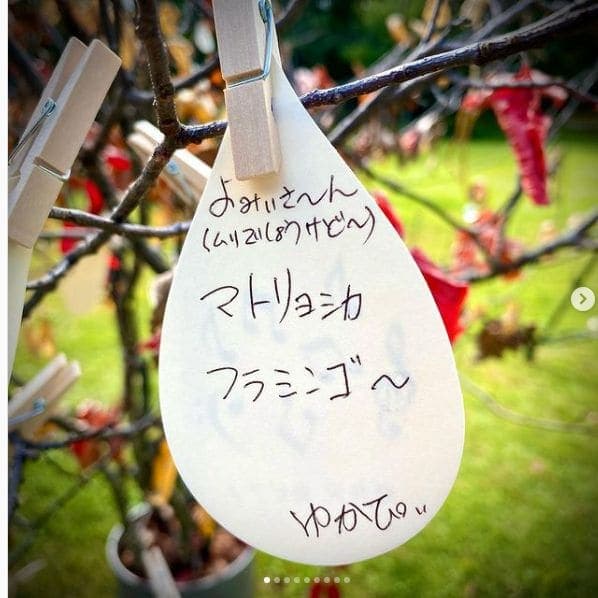 よみぃさ〜ん
(ムリでしょうけど〜)
マトリョシカ
フラミンゴ〜
ゆかぴぃ